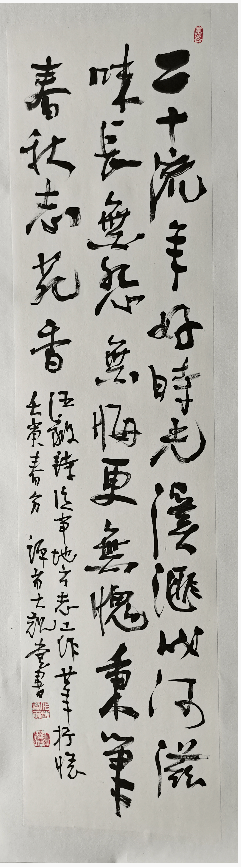 二十流年好時光溪滙成河滋
味長無怨無悔更無愧秉筆
春秋志苑香
從事地方志工作廿年抒懷
壬寅春方大觀堂書